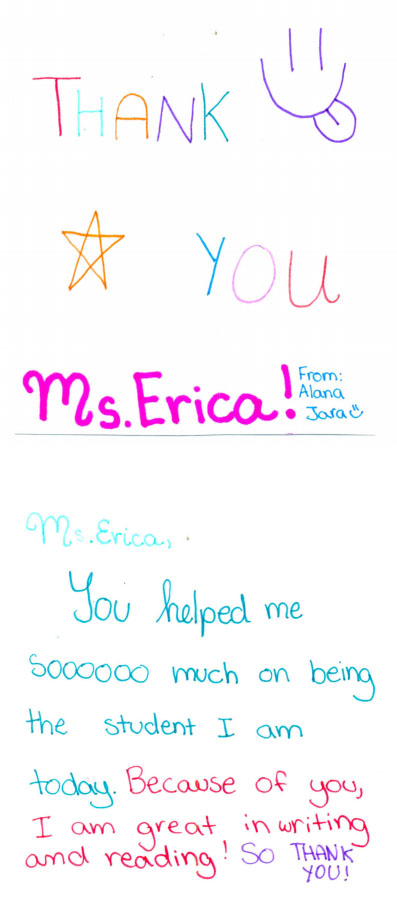 THANK
YOU
Ms. Erica!
From:
Alana
Jara
Ms. Erica,
You helped me
Sooooooo much on being
the student I am
today. Because of you,
I am great in writing
and reading! So THANK
YOU!